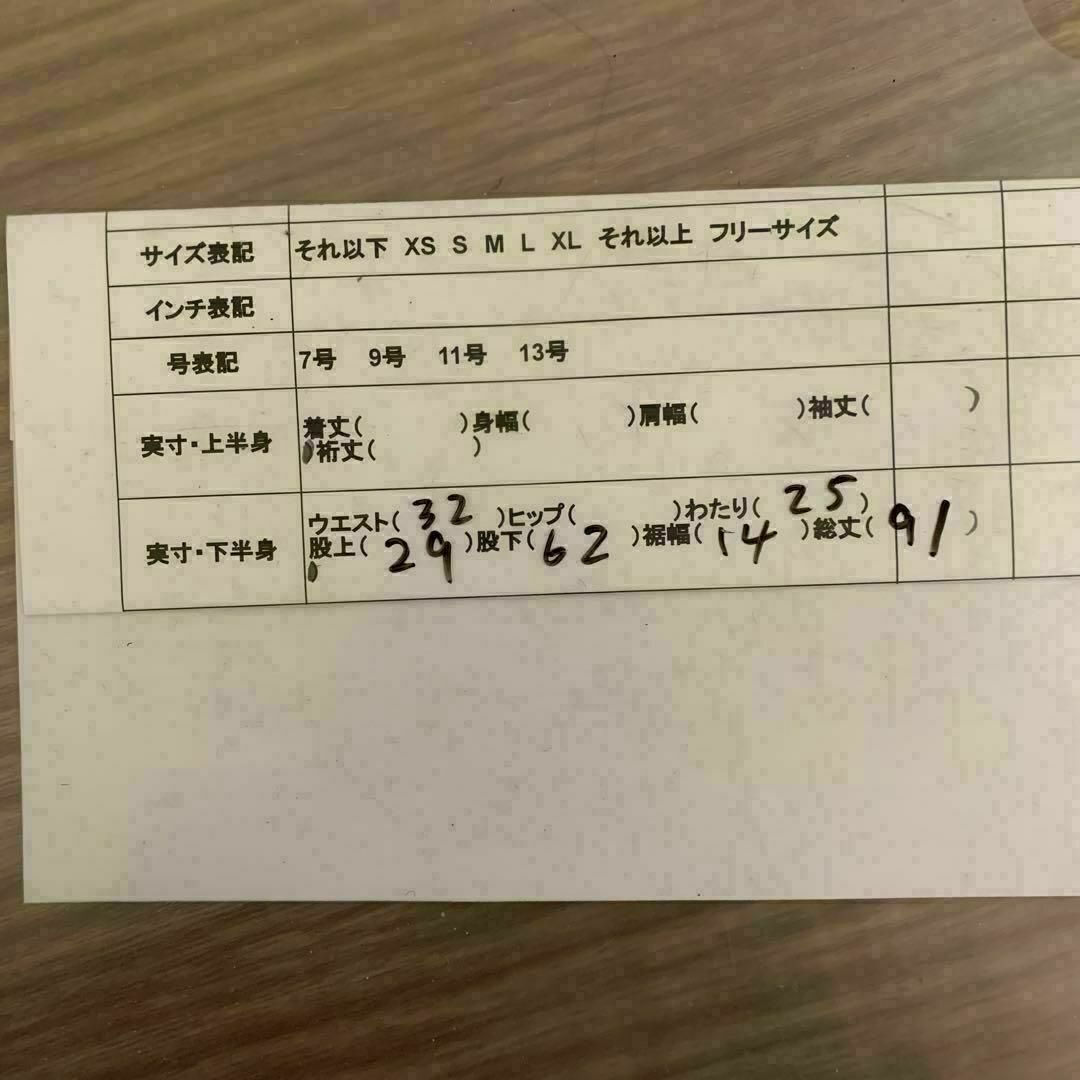 サイズ表記 それ以下 XS S M L XL それ以上 フリーサイズ
インチ表記
号表記 7号 9号 11号 13号
実寸・上半身 着丈( )身幅( )肩幅( )袖丈( )
裄丈( )
実寸・下半身 ウエスト( 32 )ヒップ( )わたり( 25 )
股上( 29 )股下( 62 )裾幅( 14 )総丈( 91 )